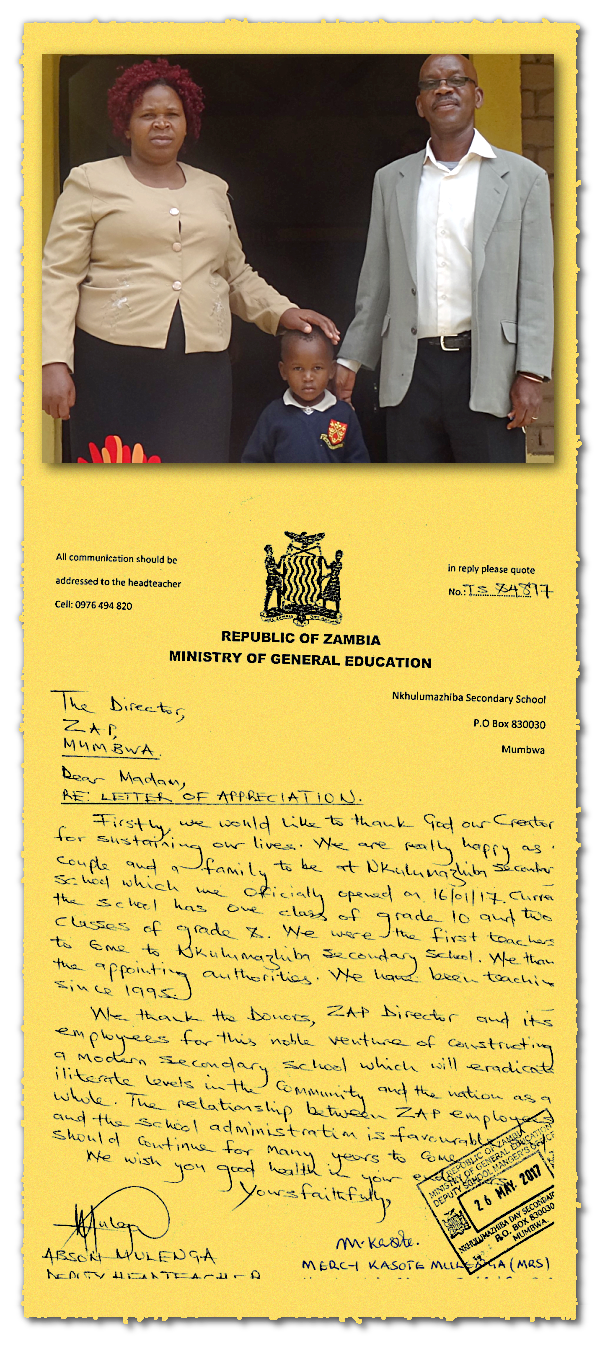 All communication should be
addressed to the headteacher
Cell: 0976 494 820
in reply please quote
No.: TS 84897
REPUBLIC OF ZAMBIA
MINISTRY OF GENERAL EDUCATION
Nkhulumazhiba Secondary School
P.O Box 830030
Mumbwa
The Director,
ZAP,
MUMBWA.
Dear Madam,
RE: LETTER OF APPRECIATION.
Firstly, we would like to thank God our Creator
for sustaining our lives. We are really happy as
couple and a family to be at Nkulumazhiba secondar
school which we oficially opened on 16/01/17. Curre
the school has one class of grade 10 and two
classes of grade 8. We were the first teachers
to come to Nkulumazhiba secondary school. We than
the appointing authorities. We have been teachin
since 1995.
We thank the Donors, ZAP Director and its
employees for this noble venture of constructing
a modern secondary school which will eradicate
iliterate levels in the community and the nation as a
whole. The relationship between ZAP employees
and the school administration is favourable
should continue for many years to come
We wish you good health in your
Yours faithfully,
REPUBLIC OF ZAMBIA
MINISTRY OF GENERAL EDUCATION
DEPUTY SCHOOL MANGER'S OFFICE
26 MAY 2017
NKHULUMAZHIBA DAY SECONDARY
P.O. BOX 830030
MUMBWA
Mulega
ABSON MULENGA
DEPUTY HEADTEACHER
M. Kasote.
MERCY KASOTE MULENGA (MRS)